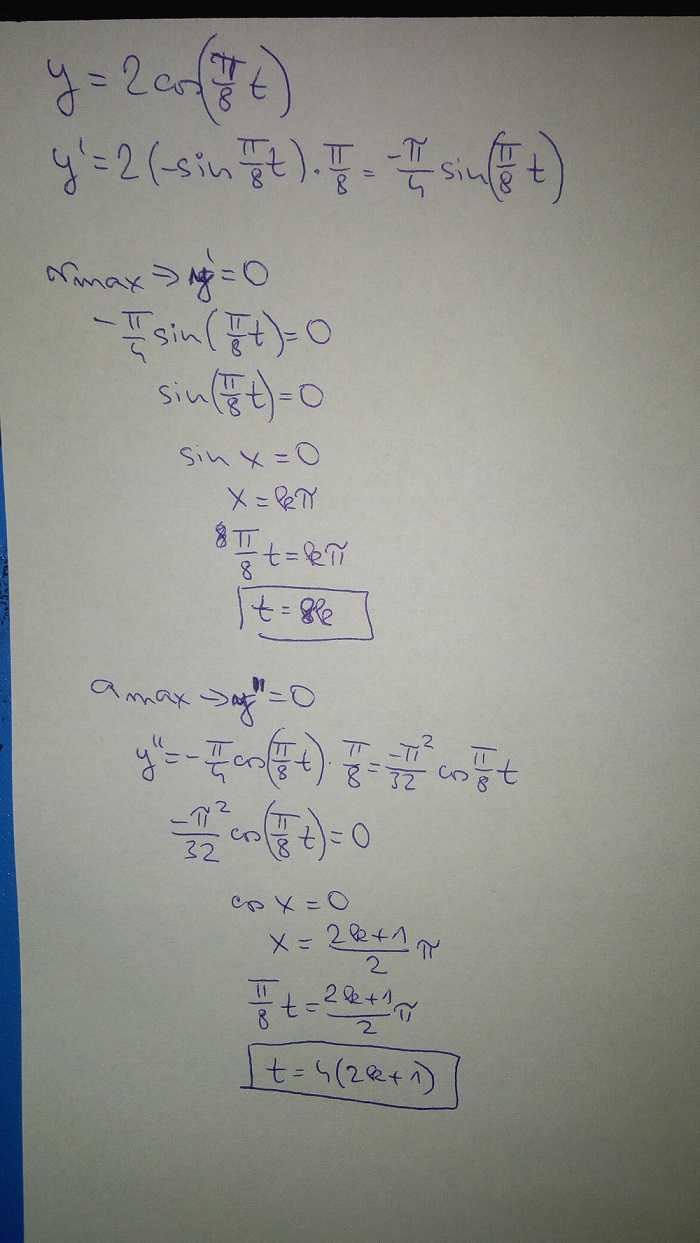 y = 2 cos(π/8 t)
y' = 2(-sin π/8 t) · π/8 = -π/4 sin(π/8 t)
vmax ⇒ y' = 0
-π/4 sin(π/8 t) = 0
sin(π/8 t) = 0
sin x = 0
x = kπ
π/8 t = kπ
t = 8k
a max → y'' = 0
y'' = -π/4 cos(π/8 t) · π/8 = -π²/32 cos π/8 t
-π²/32 cos(π/8 t) = 0
cos x = 0
x = 2k+1/2 π
π/8 t = 2k+1/2 π
t = 4(2k+1)